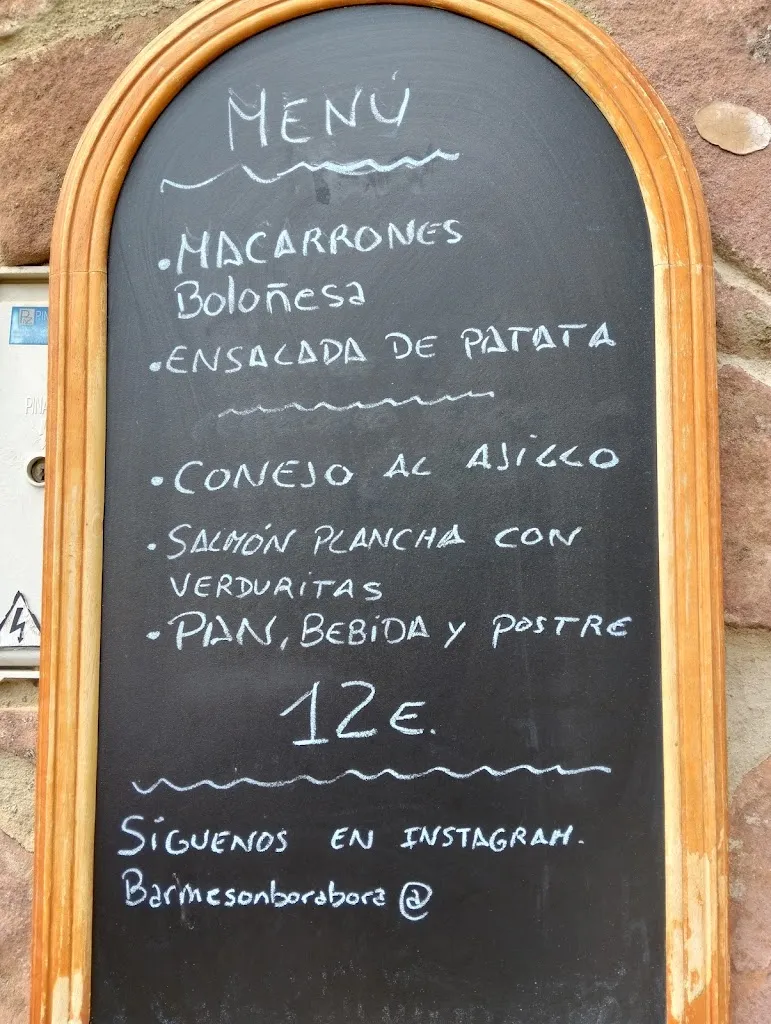 MENÚ
•MACARRONES
Boloñesa
•ENSALADA DE PATATA
•CONEJO AL AJILLO
•SALMÓN PLANCHA CON
VERDURITAS
•PAN, BEBIDA Y POSTRE
12€.
SÍGUENOS EN INSTAGRAM.
Barmesonborabora @